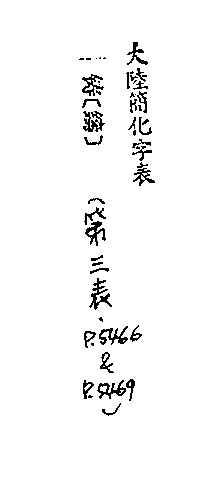 大陸簡化字表
(第三表、P.5466 & P.5469)